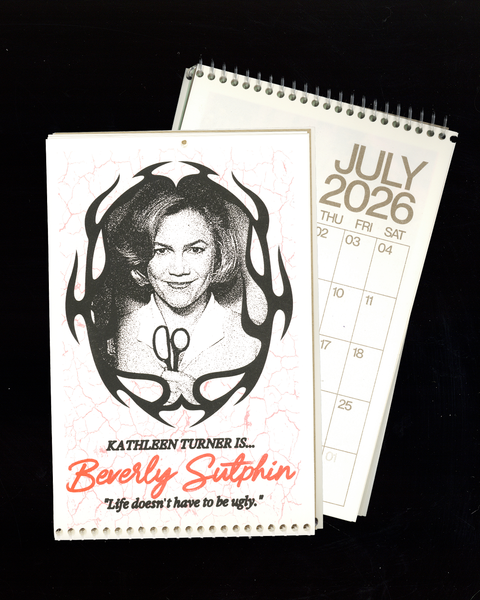 KATHLEEN TURNER IS...
Beverly Sutphin
"Life doesn't have to be ugly."
JULY
2026
THU FRI SAT
02 03 04
10 11
17 18
25
01